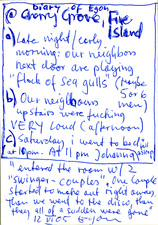 Diary of Egon
@ Cherry Grove, Fire
Island
a) Late night / early
morning: our neighbors
next door are playing
"flock of sea gulls" (maybe
5 or 6
b) Our neighbours men)
upstairs were fucking
VERY loud (afternoon)
c) Saturday, I went to bed
at 10pm. At 11 pm
"entered the room w/ 2
"swinger-couples". One couple
started to make out right away,
than we went to the disco, then
they all of a sudden were gone"